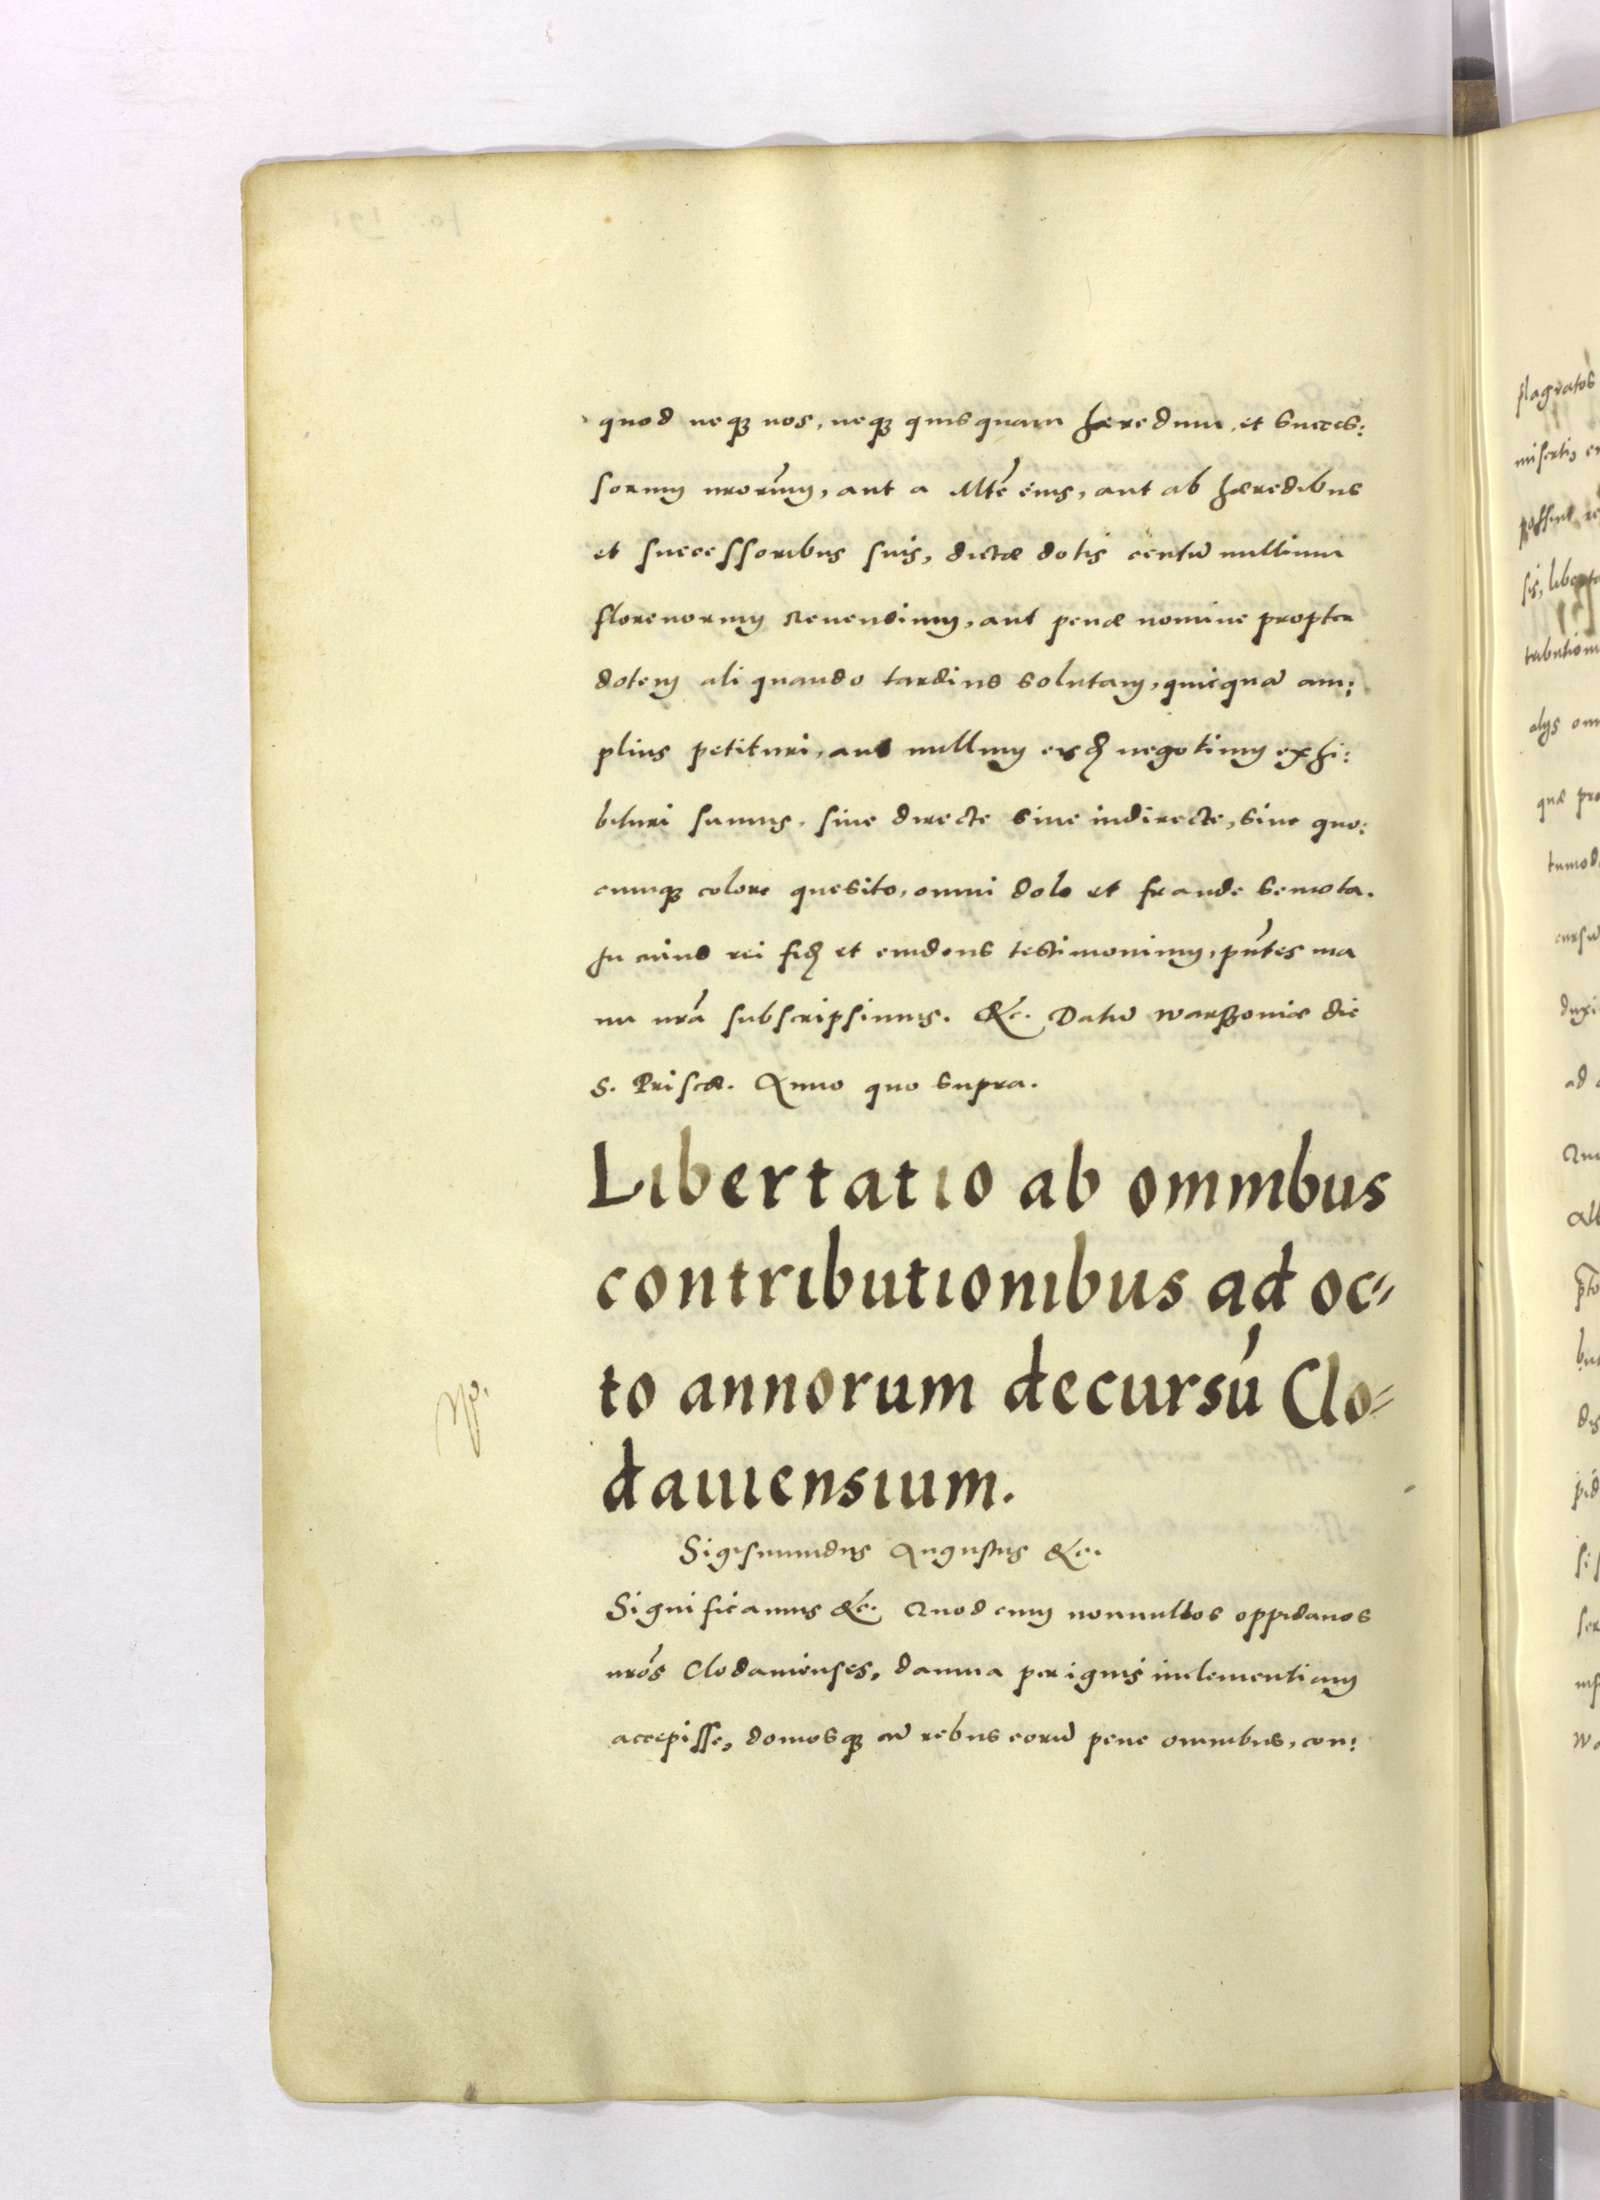 quod neqꝫ nos, neqꝫ quisquam hæredum, et succes:
sorum nrorum̄, aut a Mte eius, aut ab hæredibus
et successoribus suis, dictæ dotis centū millium
florenorum Renensium, aut penæ nomine propter
dotem aliquando tardius solutam, quicquā am:
plius petituri, aut nullum eisd negotium exhi:
bituri sumus, siue directe siue indirecte, siue quo:
cumqꝫ colore quesito, omni dolo et fraude semota.
In cuius rei fid et euidens testimonium, pn̄tes ma
nu nrā subscripsimus. &c. Datū Warssouiæ die
S. Priscæ. Anno quo supra.
Libertatio ab omnibus
contributionibus ad oc-
to annorum decursú Clo-
dauiensium.
Sigismundus Augustus &c.
Significamus &c. Quod cum nonnullos oppidanos
nrōs Clodauienses, damna per ignis inclementiam
accepisse, domosqꝫ cū rebus eorū pene omnibus, con:
flagratos
miserti,
possint
sis,
tributioni
alijs
quæ
ad